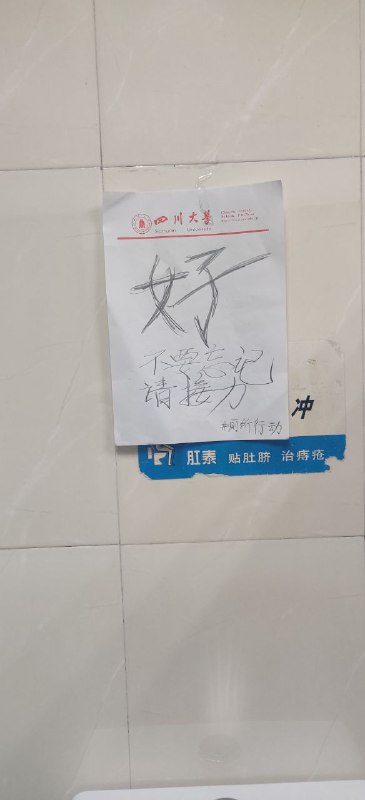 四川大学
Sichuan University
好
不要忘记
请接力
#厕所行动
冲
肛泰 贴肚脐 治痔疮